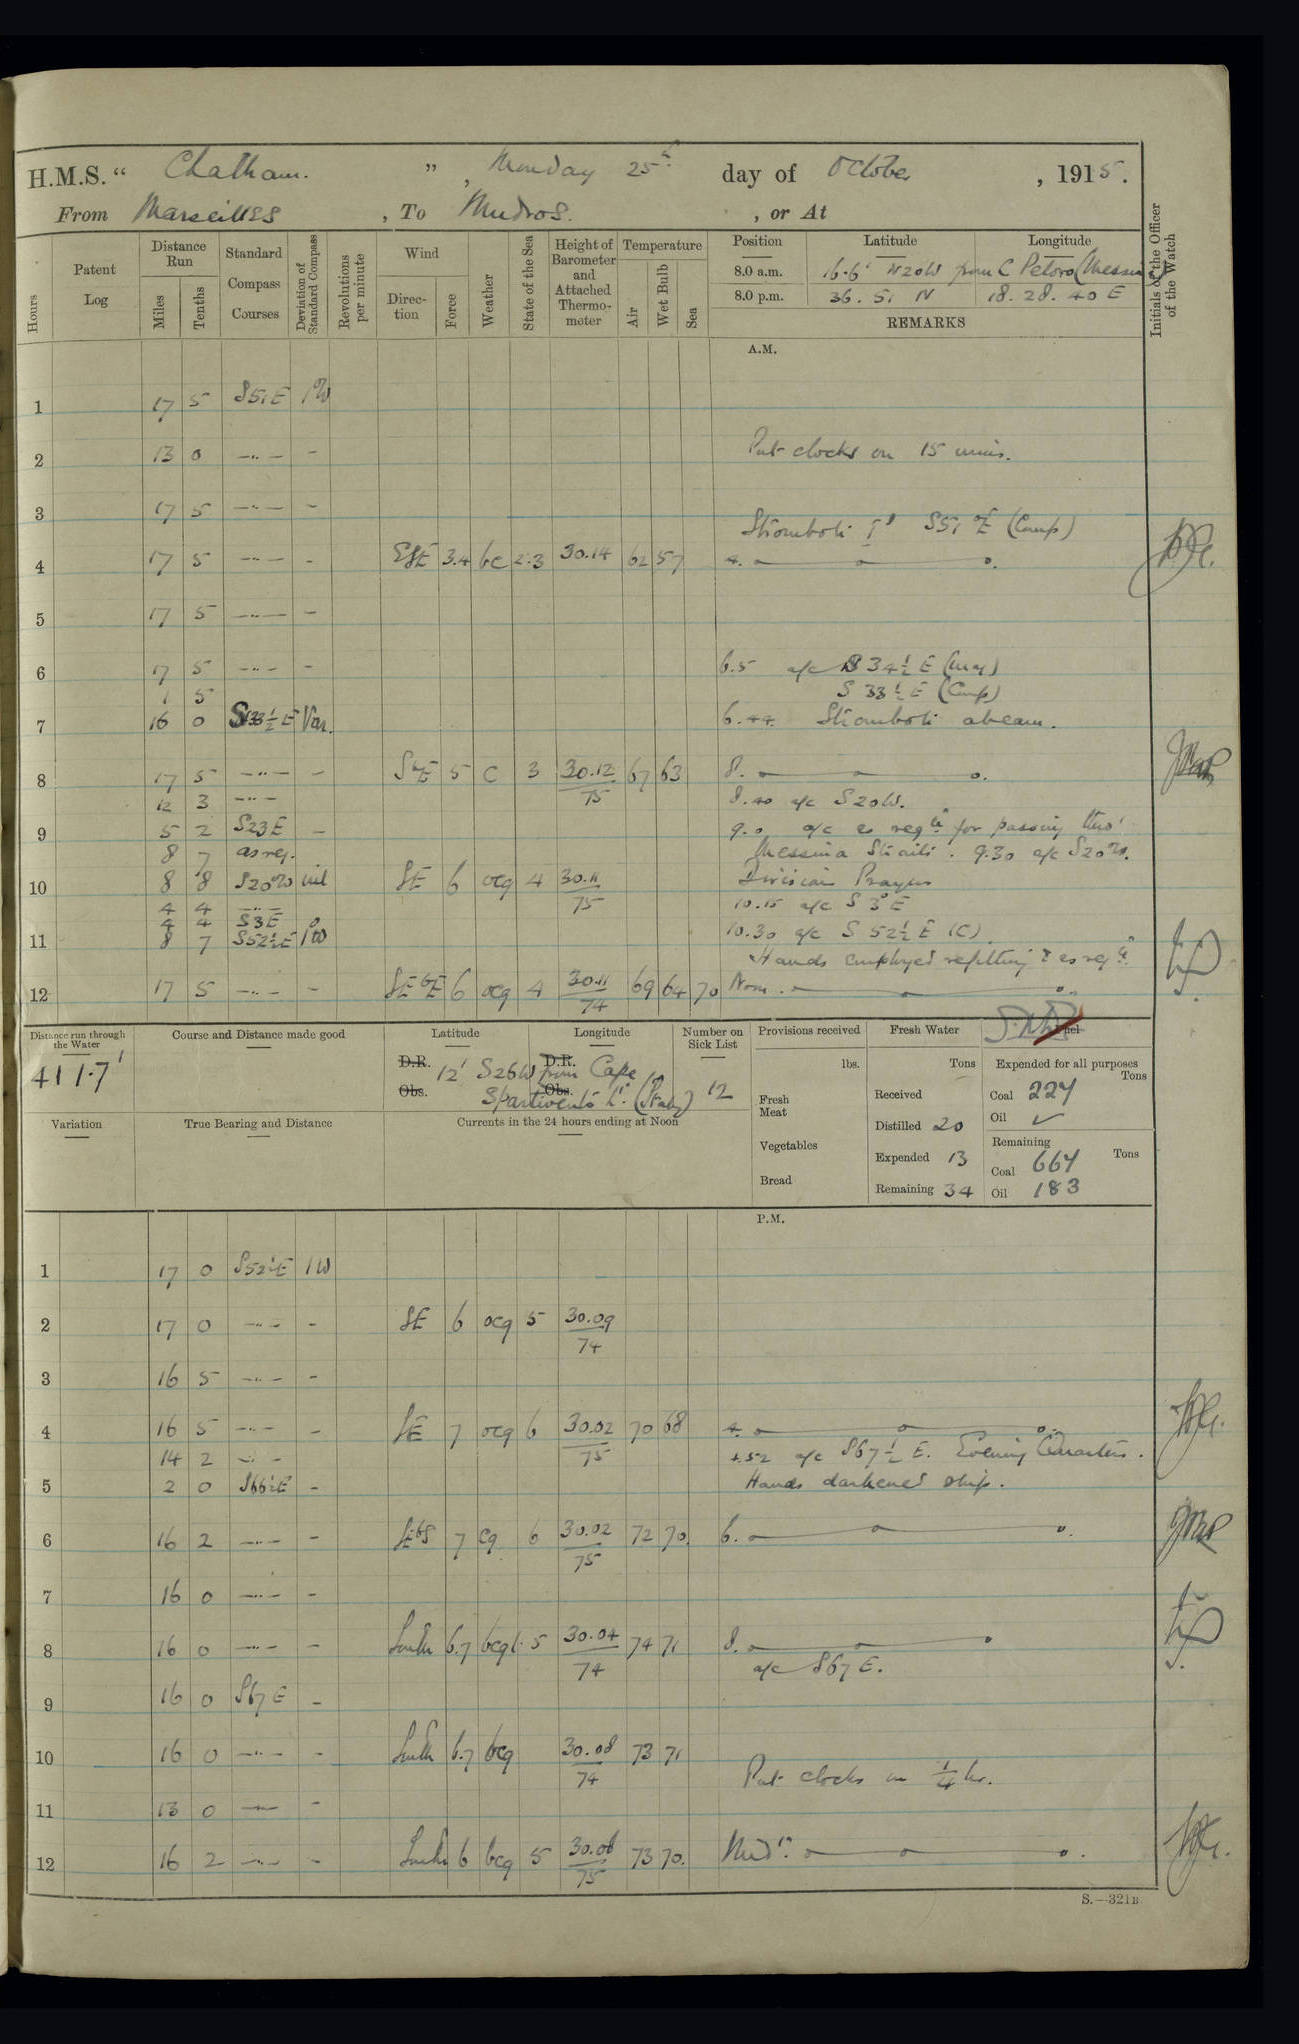 H.M.S. “ Chatham. ” , Monday 25th day of October , 1915.
From Marseilles , To Mudros. , or At
Hours
Patent Log
Distance Run
Miles
Tenths
Standard Compass Courses
Deviation of Standard Compass
Revolutions per minute
Wind
Direction
Force
Weather
State of the Sea
Height of Barometer and Attached Thermometer
Temperature
Air
Wet Bulb
Sea
Position Latitude Longitude
8.0 a.m. 16.6' N20W from C Peloro (Messina)
8.0 p.m. 36. 51 N 18. 28. 40 E
REMARKS
Initials of the Officer of the Watch
A.M.
1 17 5 S51E 1W
2 13 0 —"— - Put clocks on 15 mins.
3 17 5 —"— -
Stromboli S51°E (Comp)
4 17 5 —"— - ESE 3.4 bc 2.3 30.14 62 57 4.
5 17 5 —"— -
6 17 5 —"— - 6.5 a/c S 34½ E (mag)
1 5 S 33½ E (Comp)
7 16 0 S33½E Var. 6.44 Stromboli abeam.
8 17 5 —"— - SbE 5 C 3 30.12 67 63 8.
12 3 —"— 75 8.40 a/c S20W.
9 5 2 S23E - 9.0 a/c as reqd for passing thro'
8 7 as req. Messina Straits. 9.30 a/c S20W.
10 8 8 S20W nil SE 6 ocq 4 30.11 Divisions Prayers
4 4 —"— 75 10.15 a/c S 3°E
4 4 S3E 0
11 8 7 S52½E 1W 10.30 a/c S 52½ E (C)
Hands employed refitting & as reqd.
12 17 5 —"— - SEbE 6 ocq 4 30.11 69 64 70 Noon.
74
Distance run through the Water
411.7'
Course and Distance made good
Latitude Longitude
D.R. D.R.
Obs. Obs.
12' S26W from Cape
Spartivento Lt. (Italy)
Number on Sick List
12
Variation
True Bearing and Distance
Currents in the 24 hours ending at Noon
Provisions received
lbs.
Fresh Meat
Vegetables
Bread
Fresh Water
Tons
Received
Distilled 20
Expended 13
Remaining 34
Expended for all purposes
Tons
Coal 227
Oil ✓
Remaining
Tons
Coal 667
Oil 183
P.M.
1 17 0 S52½E 1W
2 17 0 —"— - SE 6 ocq 5 30.09
74
3 16 5 —"— -
4 16 5 —"— - SE 7 ocq 6 30.02 70 68 4.
14 2 —"— - 75 4.52 a/c S67½ E. Evening Quarters.
5 2 0 S66½E - Hands darkened ship.
6 16 2 —"— - SEbS 7 cq 6 30.02 72 70 6.
75
7 16 0 —"— -
8 16 0 —"— - 6.7 bcq 5 30.04 74 71 8.
74 a/c S67E.
9 16 0 S67E -
10 16 0 —"— - 6.7 bcq 30.08 73 71
74 Put clocks on ¼ hr.
11 13 0 —"— -
12 16 2 —"— - 6 bcq 5 30.06 73 70. Midt.
75
S.—321B